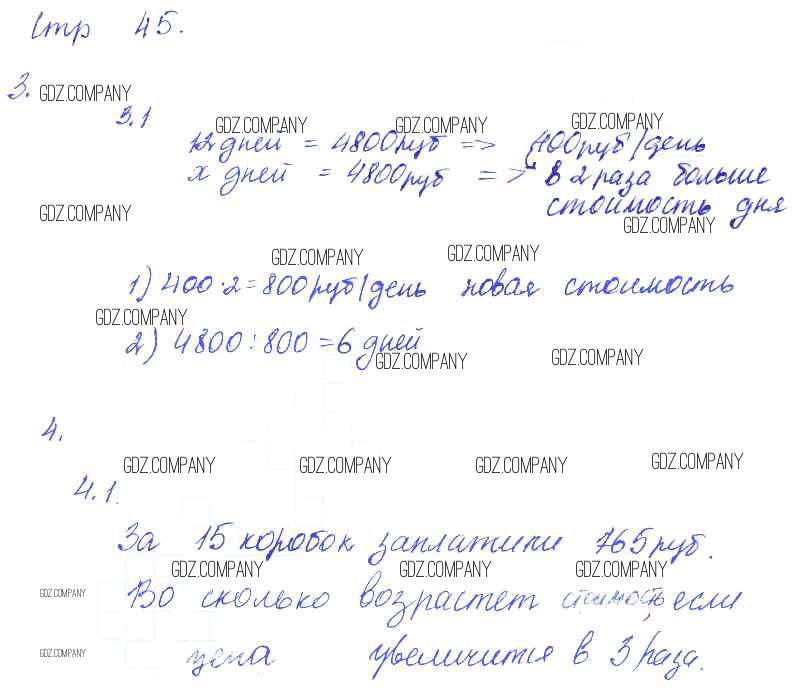 Стр 45.
3. GDZ.COMPANY
3.1 GDZ.COMPANY GDZ.COMPANY GDZ.COMPANY
12 дней = 4800 руб => 400 руб/день
х дней = 4800 руб => в 2 раза больше
GDZ.COMPANY стоимость дня
GDZ.COMPANY
GDZ.COMPANY GDZ.COMPANY
1) 400·2=800 руб/день новая стоимость
GDZ.COMPANY
2) 4800:800=6 дней
GDZ.COMPANY GDZ.COMPANY
4.
GDZ.COMPANY GDZ.COMPANY GDZ.COMPANY GDZ.COMPANY
4.1.
За 15 коробок заплатили 765 руб.
GDZ.COMPANY GDZ.COMPANY GDZ.COMPANY
GDZ.COMPANY Во сколько возрастет стоимость, если
GDZ.COMPANY цена увеличится в 3 раза.